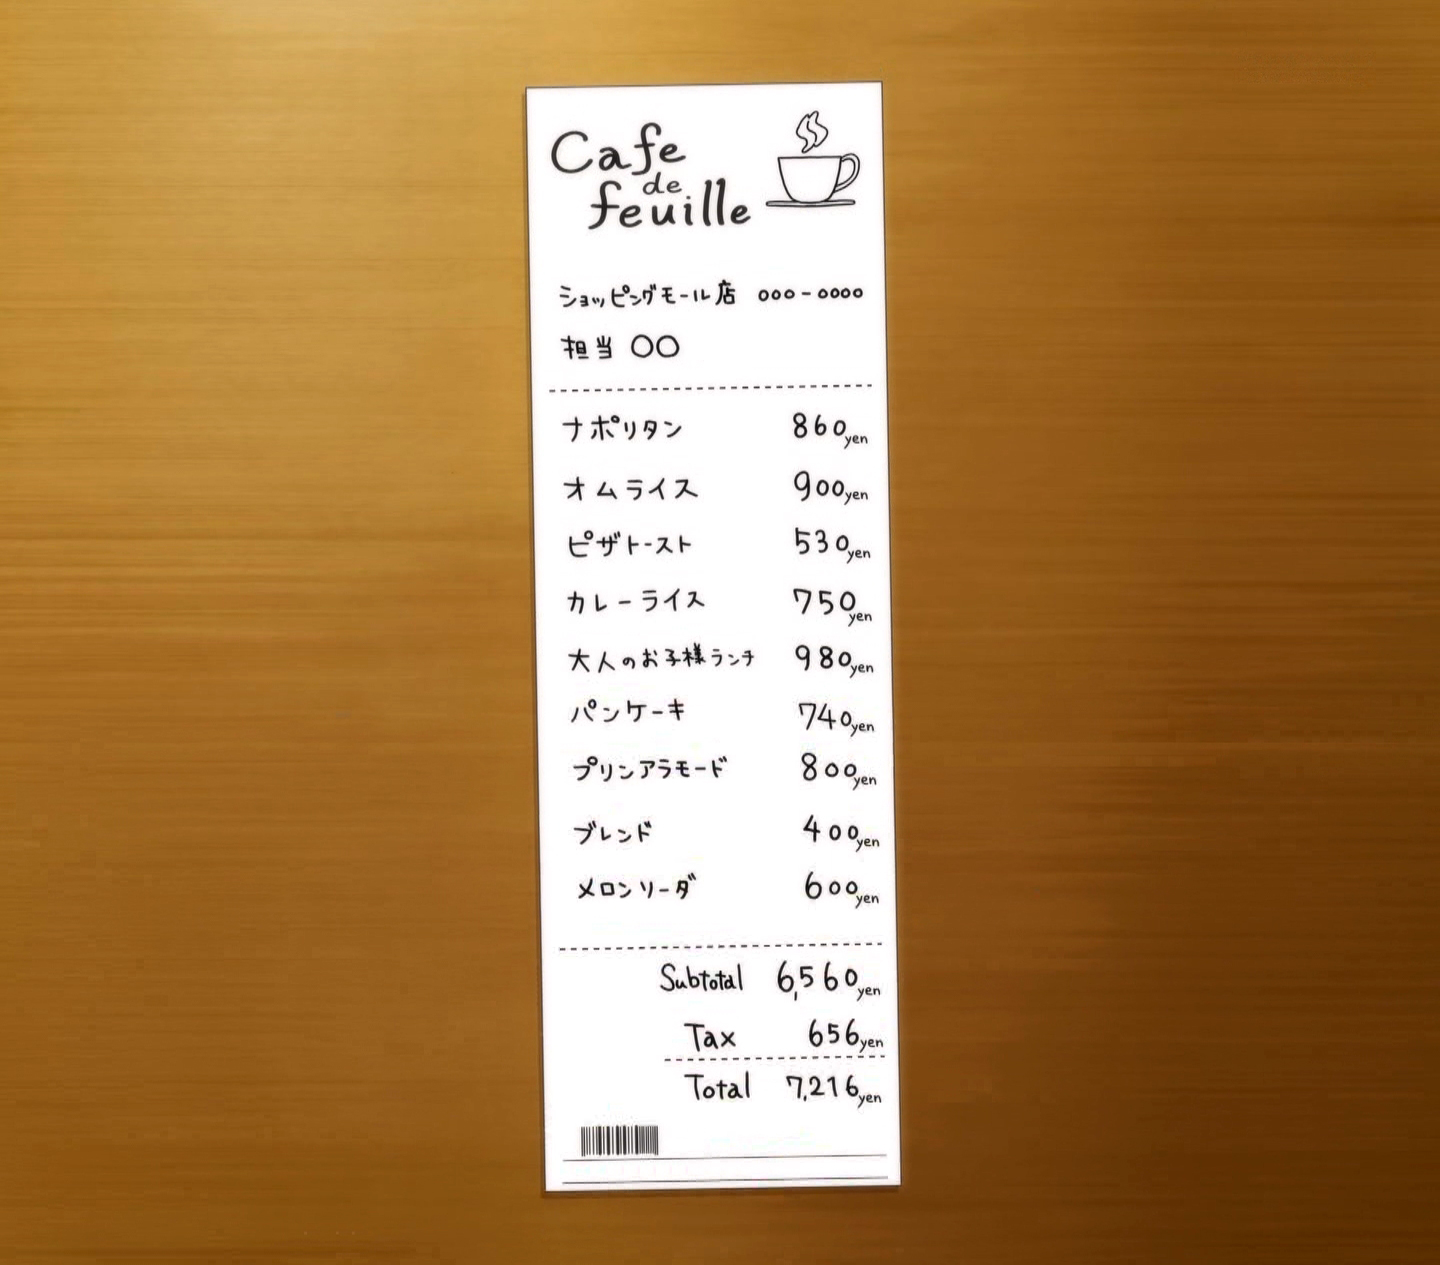 Cafe
de
feuille
ショッピングモール店 ooo-oooo
担当 〇〇
ナポリタン 860yen
オムライス 900yen
ピザトースト 530yen
カレーライス 750yen
大人のお子様ランチ 980yen
パンケーキ 740yen
プリンアラモード 800yen
ブレンド 400yen
メロンソーダ 600yen
Subtotal 6,560yen
Tax 656yen
Total 7,216yen